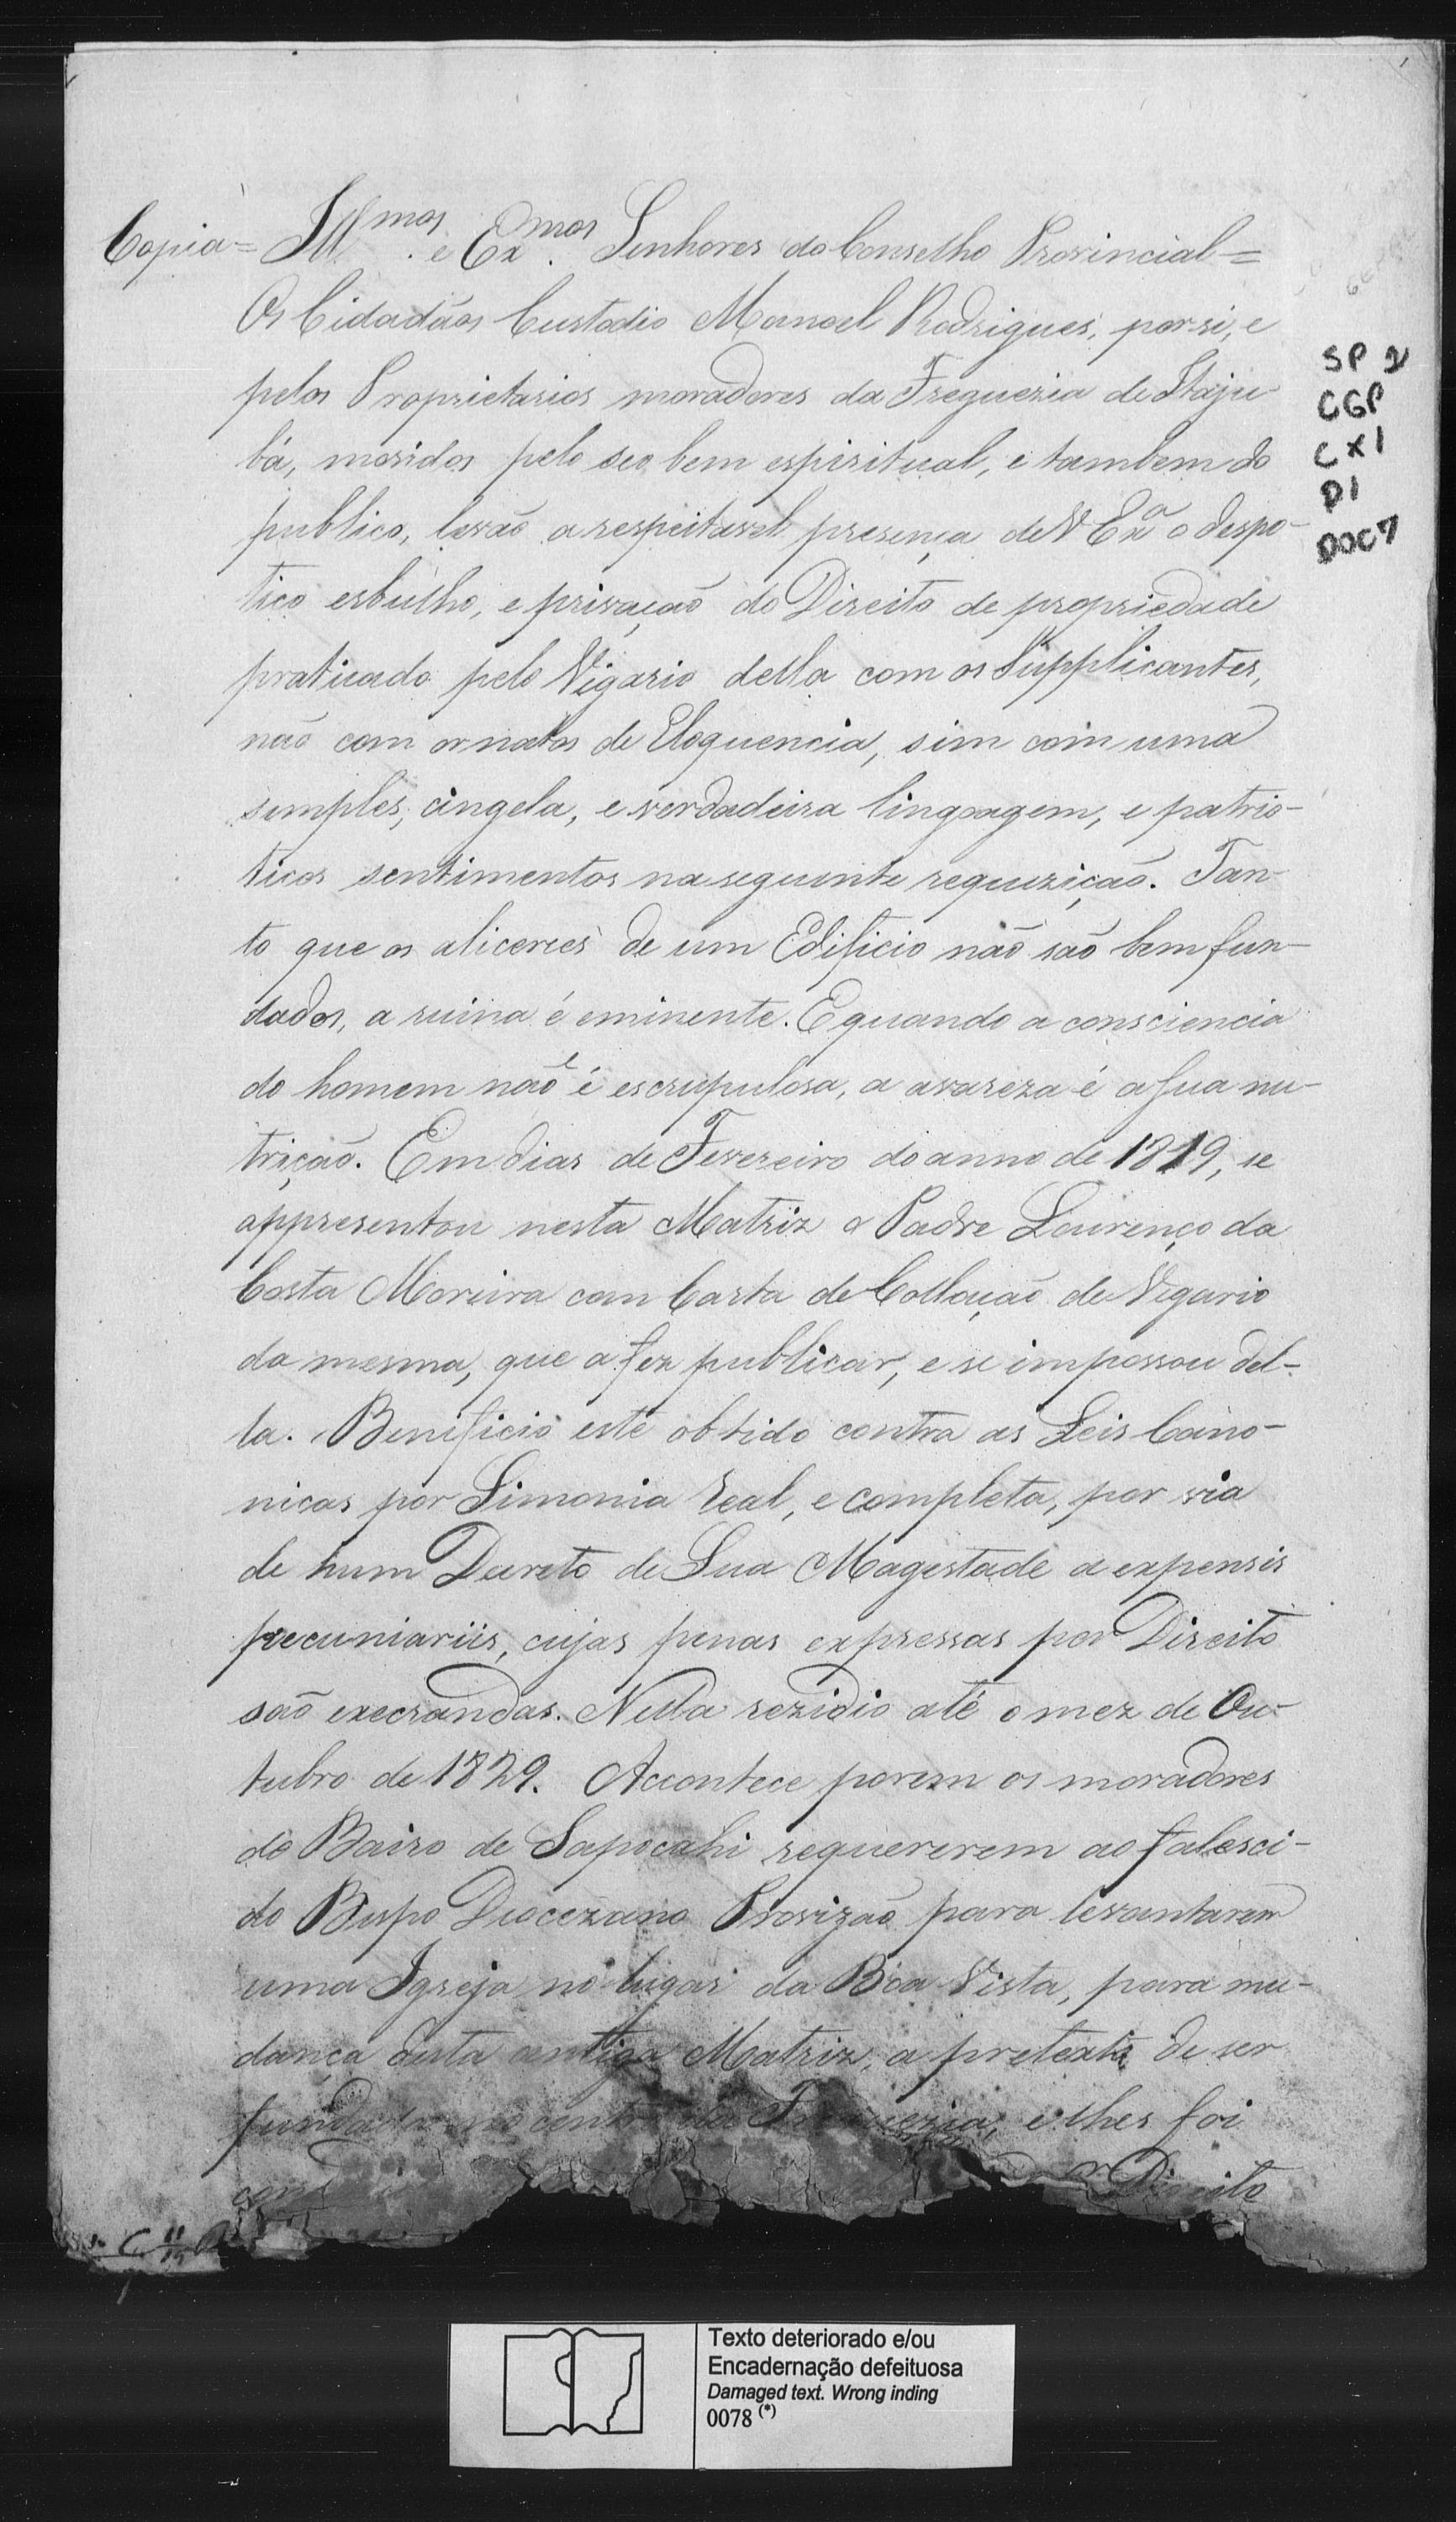 Copia = Ill.mos e Ex.mos Senhores do Conselho Provincial =
Os Cidadãos Custodio Manoel Rodrigues, por si, e
pelos Proprietarios moradores da Freguezia de Itaju-
bá, movidos pelo seo bem espiritual, e tambem do
publico, levão a respeitavel presença de V Exa o despo-
tico esbulho, e privação do Direito de propriedade
praticado pelo Vigario della com os Supplicantes,
não com ornatos de Eloquencia, sim com uma
simples, cingela, e verdadeira lingoagem, e patrio-
ticos sentimentos na seguinte requezição. Tan-
to que os alicerces de um Edificio não são bem fun-
dados, a ruina é eminente. E quando a consciencia
do homem não é escrupulosa, a avareza é a sua nu-
trição. Em dias de Fevereiro do anno de 1819, se
appresentou nesta Matriz o Padre Lourenço da
Costa Moreira com Carta de Collação de Vigario
da mesma, que a fez publicar, e se impossou del-
la. Benificio este obtido contra as Leis Cano-
nicas por Simonia real, e completa, por via
de hum Decreto de Sua Magestade a expensis
pecuniariis, cujas penas expressas por Direito
são execrandas. Nella rezidio até o mez de Ou-
tubro de 1829. Accontece porem os moradores
do Bairo de Sapocahi requererem ao falesci-
do Bispo Diocezano Provizão para levantarem
uma Igreja no lugar da Boa Vista, para mu-
dança desta antiga Matriz, a pretexto de ser
fundada no centro da Freguezia, e lhes foi
Direito
SP 2
CGP
CX1
D1
DOC7
Texto deteriorado e/ou
Encadernação defeituosa
Damaged text. Wrong inding
0078 (*)